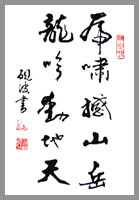 虎啸撼山岳
龍吟動地天
砚波書